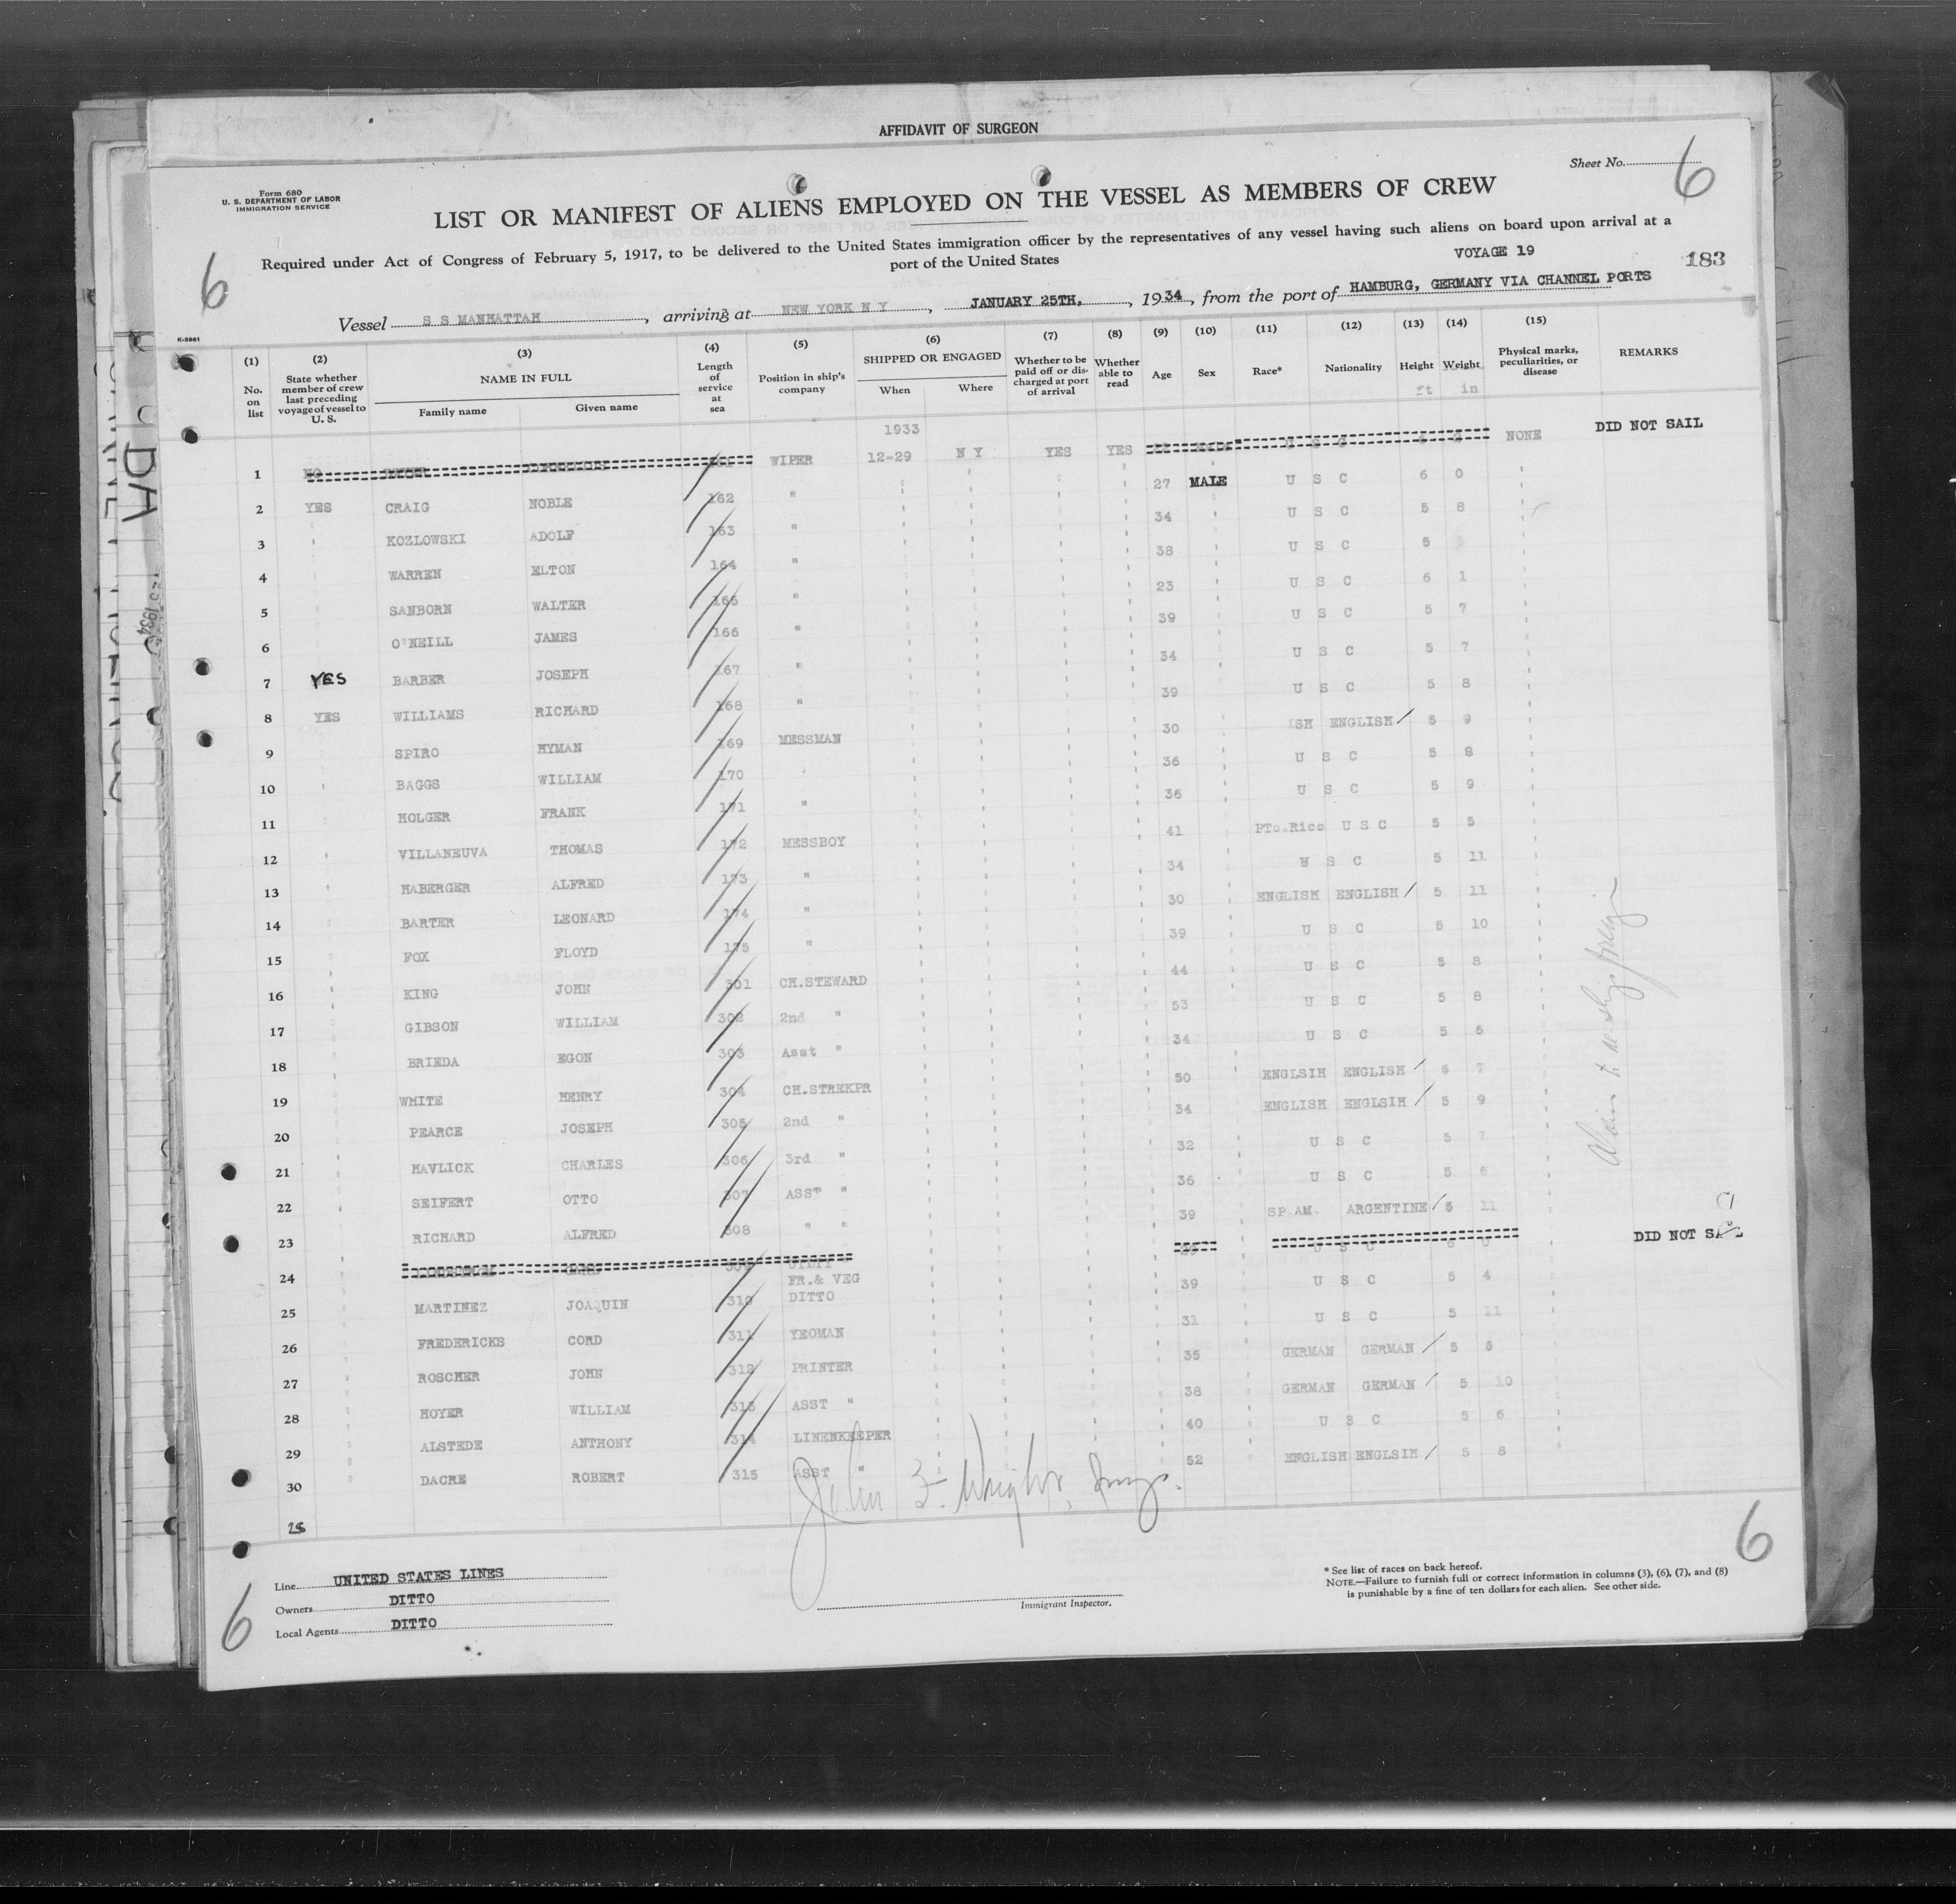 AFFIDAVIT OF SURGEON
Sheet No. 6
Form 680
U. S. DEPARTMENT OF LABOR
IMMIGRATION SERVICE
LIST OR MANIFEST OF ALIENS EMPLOYED ON THE VESSEL AS MEMBERS OF CREW
6
Required under Act of Congress of February 5, 1917, to be delivered to the United States immigration officer by the representatives of any vessel having such aliens on board upon arrival at a
port of the United States
VOYAGE 19
183
Vessel S S MANHATTAN, arriving at NEW YORK N Y, JANUARY 25TH, 1934, from the port of HAMBURG, GERMANY VIA CHANNEL PORTS
K-3961
(1) (2) (3) (4) (5) (6) (7) (8) (9) (10) (11) (12) (13) (14) (15)
No. on list
State whether member of crew last preceding voyage of vessel to U. S.
NAME IN FULL
Family name Given name
Length of service at sea
Position in ship's company
SHIPPED OR ENGAGED
When Where
Whether to be paid off or discharged at port of arrival
Whether able to read
Age
Sex
Race*
Nationality
Height
Weight
ft in
Physical marks, peculiarities, or disease
REMARKS
1933
1 NO WIPER 12-29 N Y YES YES U S C NONE DID NOT SAIL
2 YES CRAIG NOBLE 162 " 27 MALE U S C 6 0
3 " KOZLOWSKI ADOLF 163 " 34 U S C 5 8
4 WARREN ELTON 164 " 38 U S C 5
5 SANBORN WALTER 165 " 23 U S C 6 1
6 O'NEILL JAMES 166 " 39 U S C 5 7
7 YES BARBER JOSEPH 167 " 34 U S C 5 7
8 YES WILLIAMS RICHARD 168 " 39 U S C 5 8
9 SPIRO HYMAN 169 MESSMAN 30 ISH ENGLISH / 5 9
10 BAGGS WILLIAM 170 36 U S C 5 8
11 HOLGER FRANK 171 " 36 U S C 5 9
12 VILLANEUVA THOMAS 172 MESSBOY 41 PTo.Rico U S C 5 5
13 HABERGER ALFRED 173 " 34 U S C 5 11
14 BARTER LEONARD 174 " 30 ENGLISH ENGLISH / 5 11
15 FOX FLOYD 175 " 39 U S C 5 10
16 KING JOHN 301 CH.STEWARD 44 U S C 5 8
17 GIBSON WILLIAM 302 2nd " 53 U S C 5 8
18 BRIEDA EGON 303 Asst " 34 U S C 5 6
19 WHITE HENRY 304 CH.STREKPR 50 ENGLSIH ENGLISH / 5 7
20 PEARCE JOSEPH 305 2nd " 34 ENGLISH ENGLSIH / 5 9
21 HAVLICK CHARLES 306 3rd " 32 U S C 5
22 SEIFERT OTTO 307 ASST " 36 U S C 5 6
23 RICHARD ALFRED 308 " " 39 SP.AM. ARGENTINE / 5 11
24 U S C 6 0 DID NOT SAIL
25 MARTINEZ JOAQUIN 310 FR.& VEG DITTO 39 U S C 5 4
26 FREDERICKS CORD 311 YEOMAN 31 U S C 5 11
27 ROSCHER JOHN 312 PRINTER 35 GERMAN GERMAN / 5 8
28 HOYER WILLIAM 313 ASST " 38 GERMAN GERMAN / 5 10
29 ALSTEDE ANTHONY 314 LINENKEEPER 40 U S C 5 6
30 DACRE ROBERT 315 ASST " 52 ENGLISH ENGLSIH / 5 8
John F. Wright, Insp.
Immigrant Inspector.
Line UNITED STATES LINES
Owners DITTO
Local Agents DITTO
6
6
* See list of races on back hereof.
NOTE.—Failure to furnish full or correct information in columns (3), (6), (7), and (8)
is punishable by a fine of ten dollars for each alien. See other side.